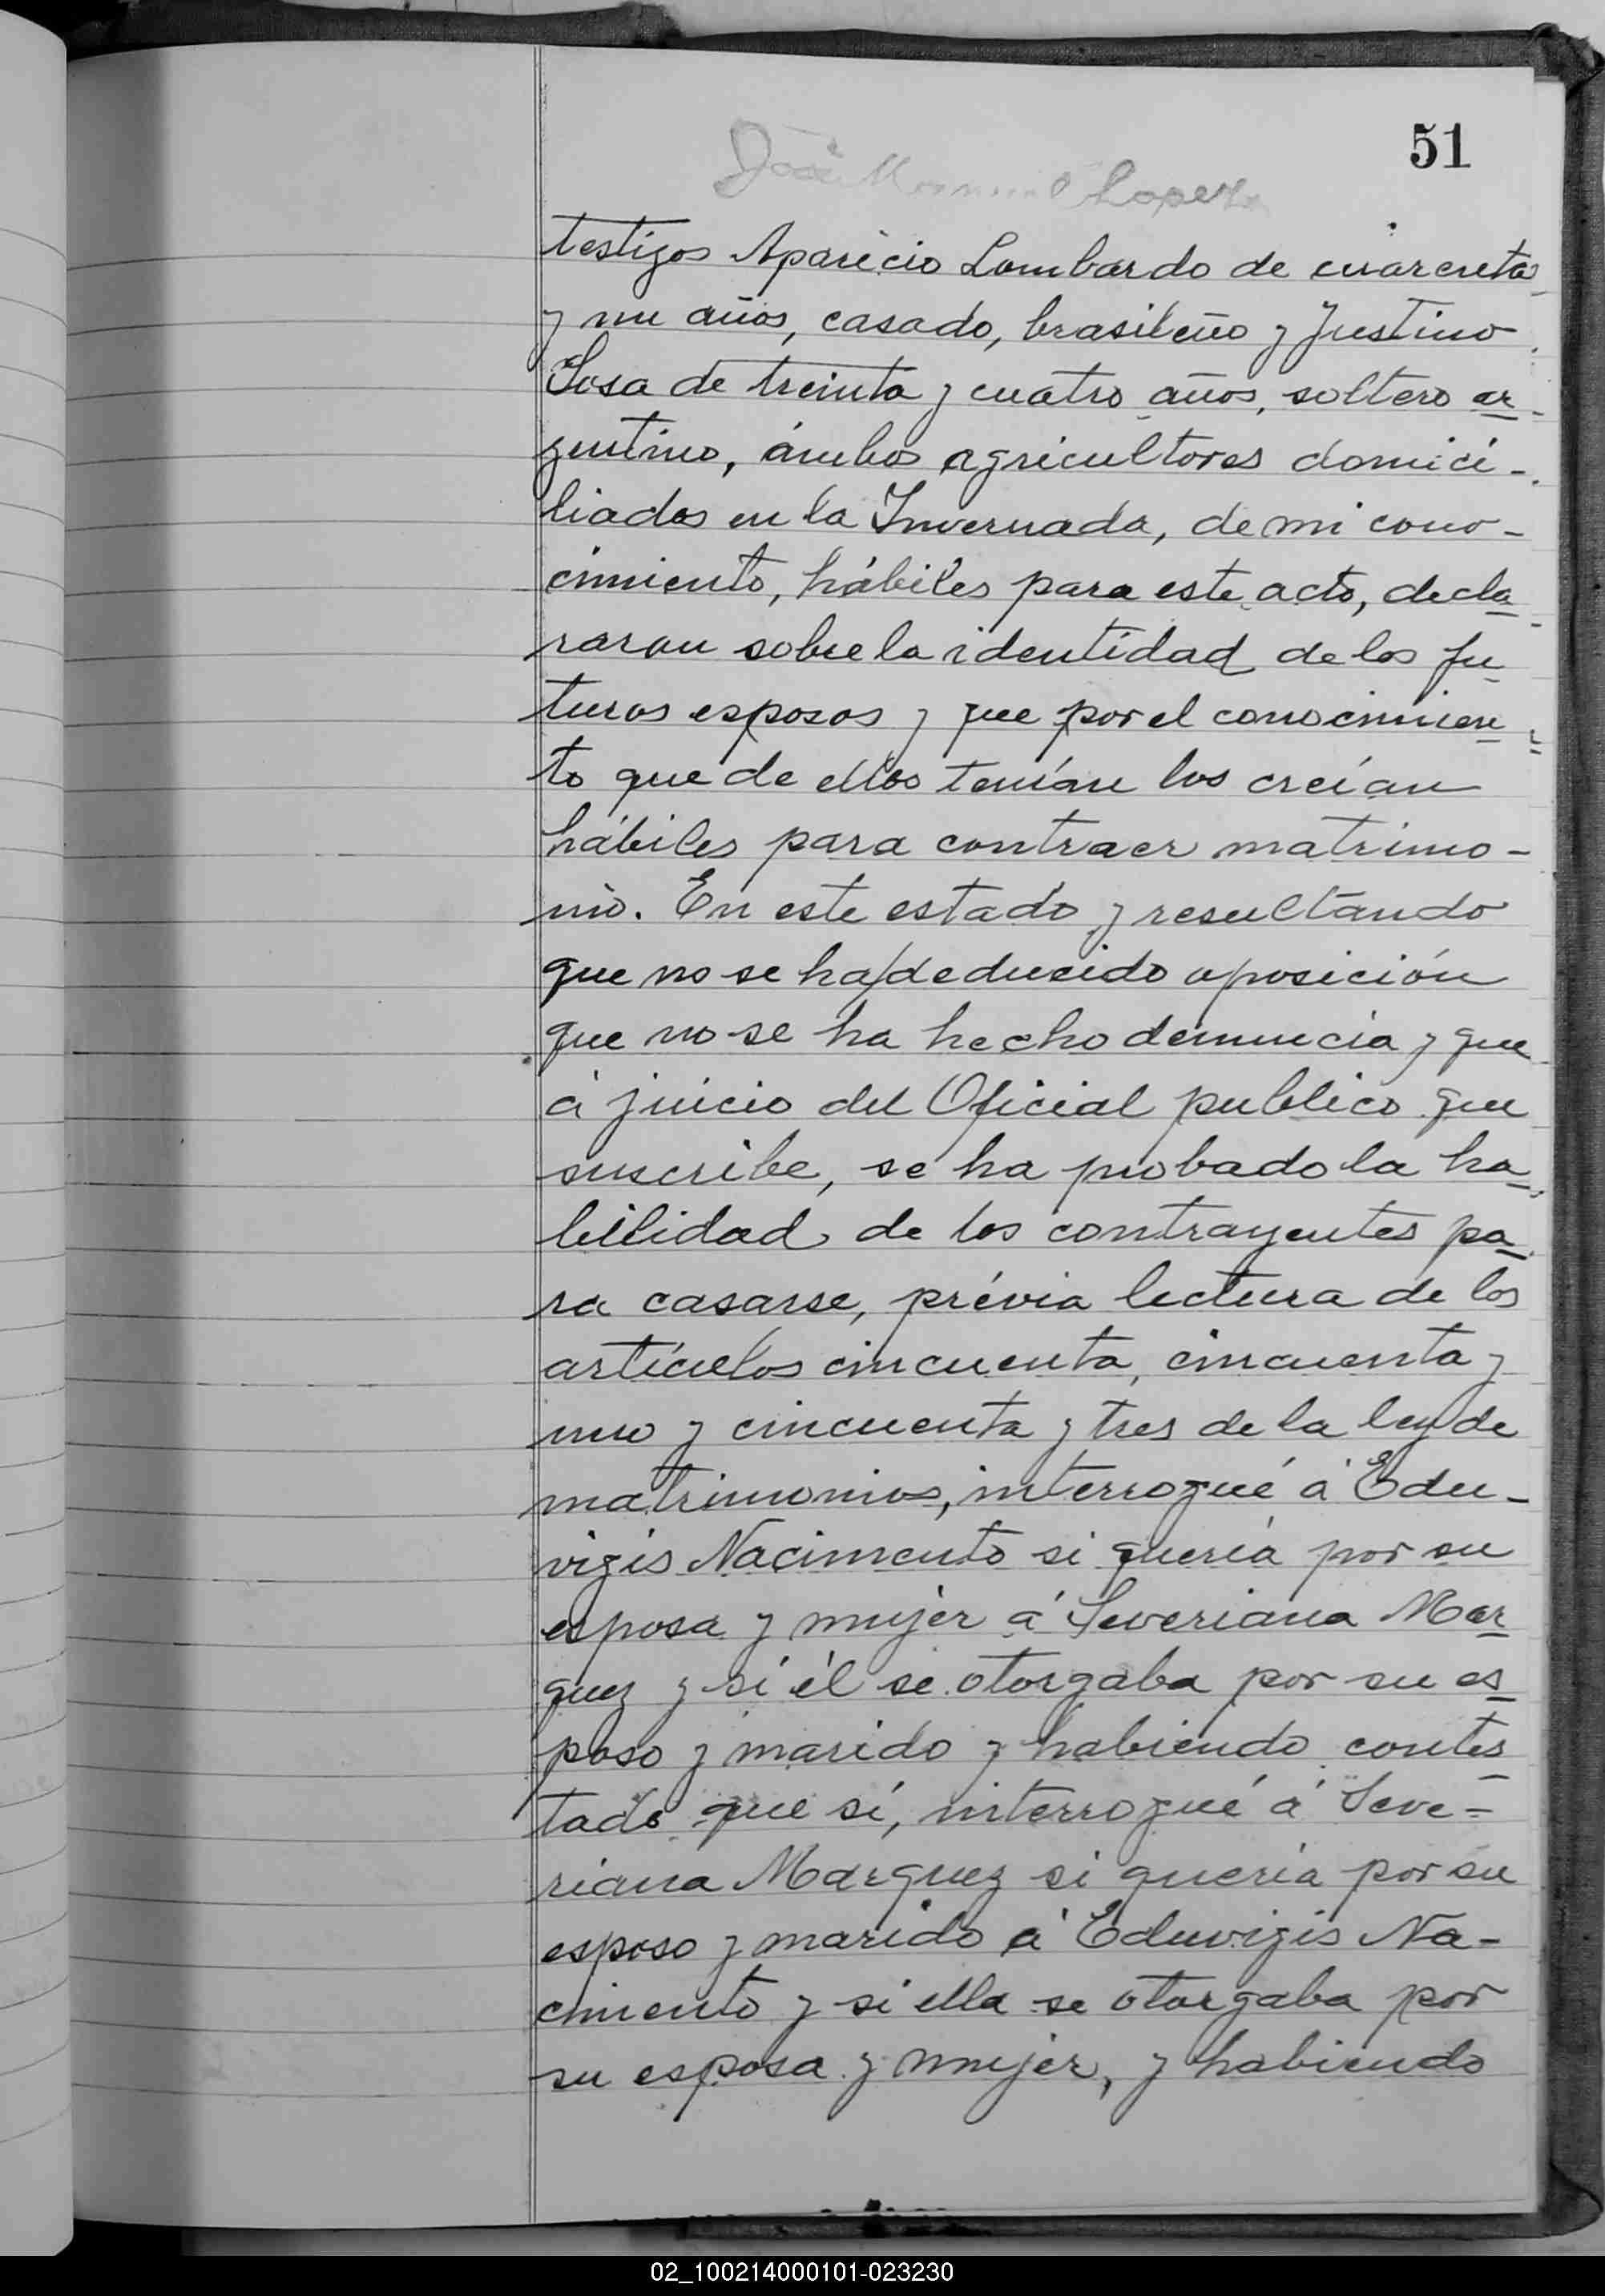 51
José Manuel Lopez
testigos Aparicio Lombardo de cuarenta
y un años, casado, brasileño y Justino
Sosa de treinta y cuatro años, soltero ar-
gentino, ámbos agricultores domici-
liados en la Invernada, de mi cono-
cimiento, hábiles para este acto, decla-
raron sobre la identidad de los fu-
turos esposos y que por el conocimien-
to que de ellos tenían los creían
hábiles para contraer matrimo-
nio. En este estado y resultando
que no se ha/deducido oposición
que no se ha hecho denuncia y que
á juicio del Oficial publico que
suscribe, se ha probado la ha-
bilidad de los contrayentes pa-
ra casarse, prévia lectura de los
artículos cincuenta, cincuenta y
uno y cincuenta y tres de la ley de
matrimonios, interrogué á Edu-
vigis Nacimento si quería por su
esposa y mujer á Severiana Mar-
quez y si él se otorgaba por su es-
poso y marido y habiendo contes-
tado que sí, interrogué á Seve=
riana Marquez si quería por su
esposo y marido á Eduvigis Na-
cimento y si ella se otorgaba por
su esposa y mujer, y habiendo
02_100214000101-023230